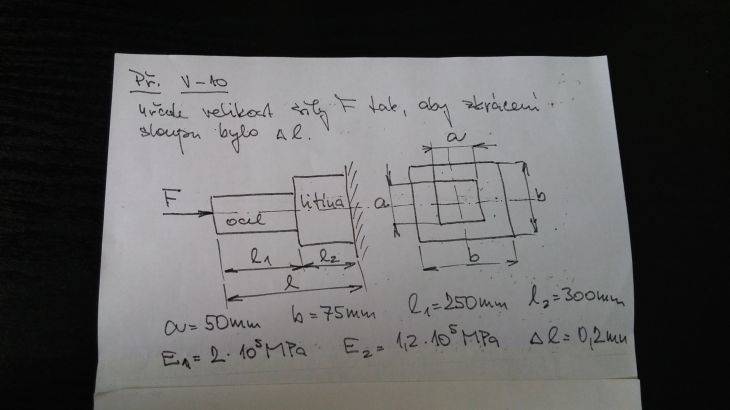 Př. V-10
Určete velikost síly F tak, aby zkrácení
sloupu bylo Δl.
a
F
ocel
litina
a
b
l₁
l₂
l
b
a=50mm b=75mm l₁=250mm l₂=300mm
E₁=2·10⁵MPa E₂=1,2·10⁵MPa Δl=0,2mm